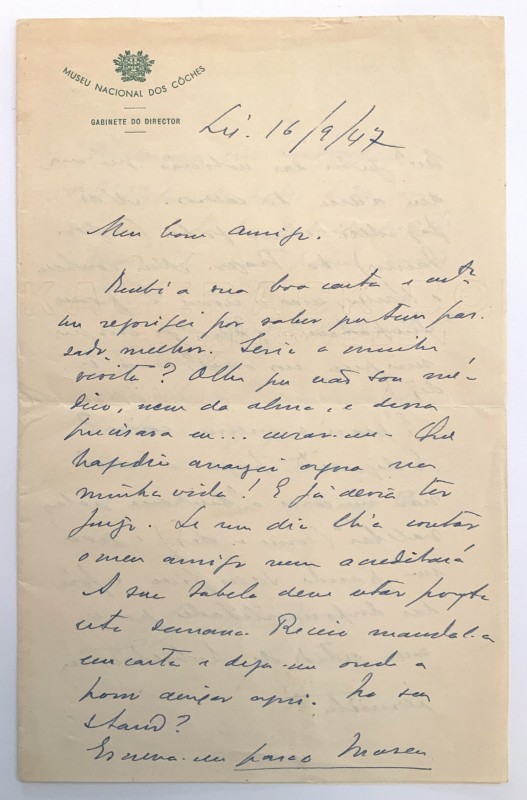 MUSEU NACIONAL DOS CÔCHES
GABINETE DO DIRECTOR
Lx. 16/9/47
Meu bom amigo.
Recebi a sua boa carta e
me regosijei por saber que tem pas-
sado melhor. Seria a minha
visita? Olhe que não sou mé-
dico, nem da alma, e dessa
precisava eu... curar-me. Que
tragedia arranjei agora na
minha vida! E já devia ter
juizo. Se um dia lh'a contar
o meu amigo nem acreditará
A sua tabela deve estar pronta
esta semana. Receio mandal-a
em carta e diga-me onde a
posso deixar aqui. No seu
stand?
Escreva-me para o Museu